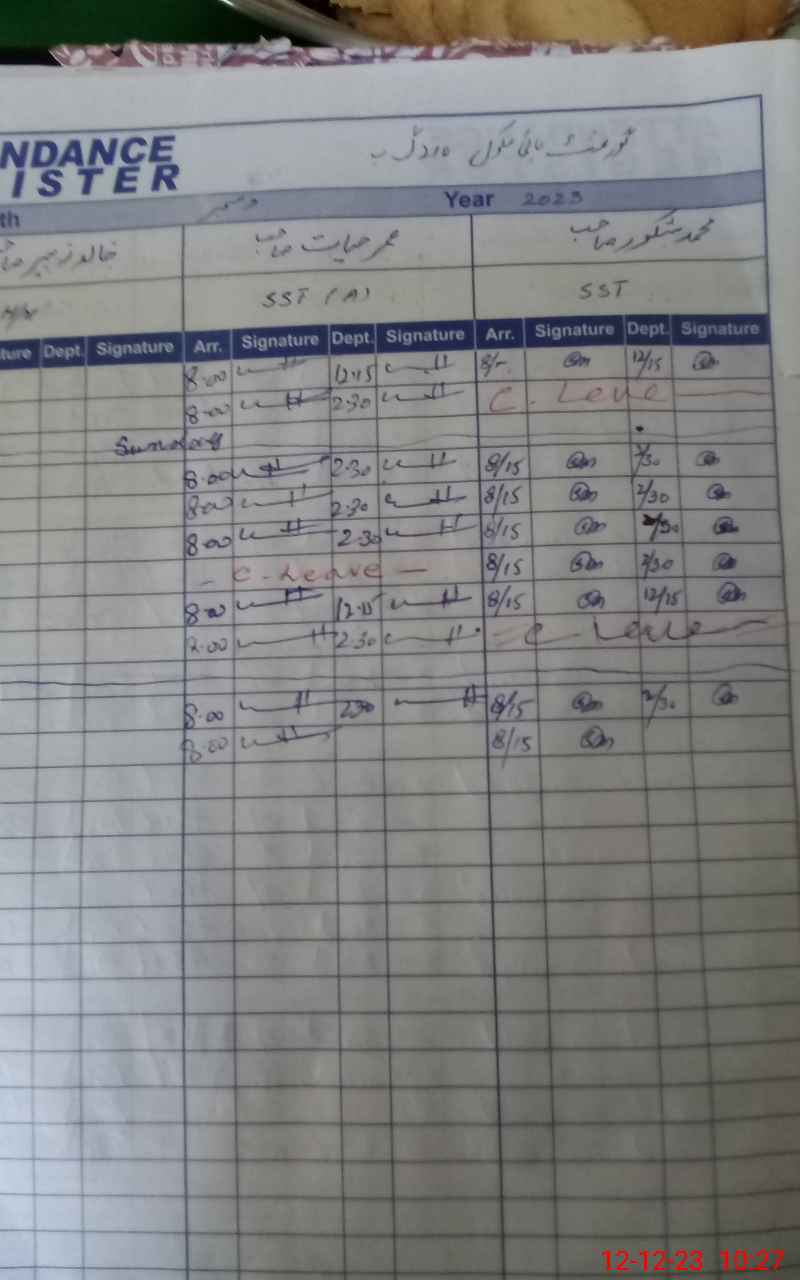 NDANCE
ISTER
گورنمنٹ ہائی سکول
th دسمبر Year 2023
خالد زبیر عمر حیات صاحب محمد شکور صاحب
SST (A) SST
ture Dept. Signature Arr. Signature Dept. Signature Arr. Signature Dept. Signature
8.00 12.15 8/- 12/15
8.00 2.30 C. Leve
Sunday
8.00 2.30 8/15 2/30
8.00 2.30 8/15 2/30
8.00 2.30 8/15 2/30
C. Leave 8/15 2/30
8.00 12.15 8/15 12/15
2.30 C Leve
8.00 2.30 8/15 2/30
8.00 8/15
12-12-23 10:27